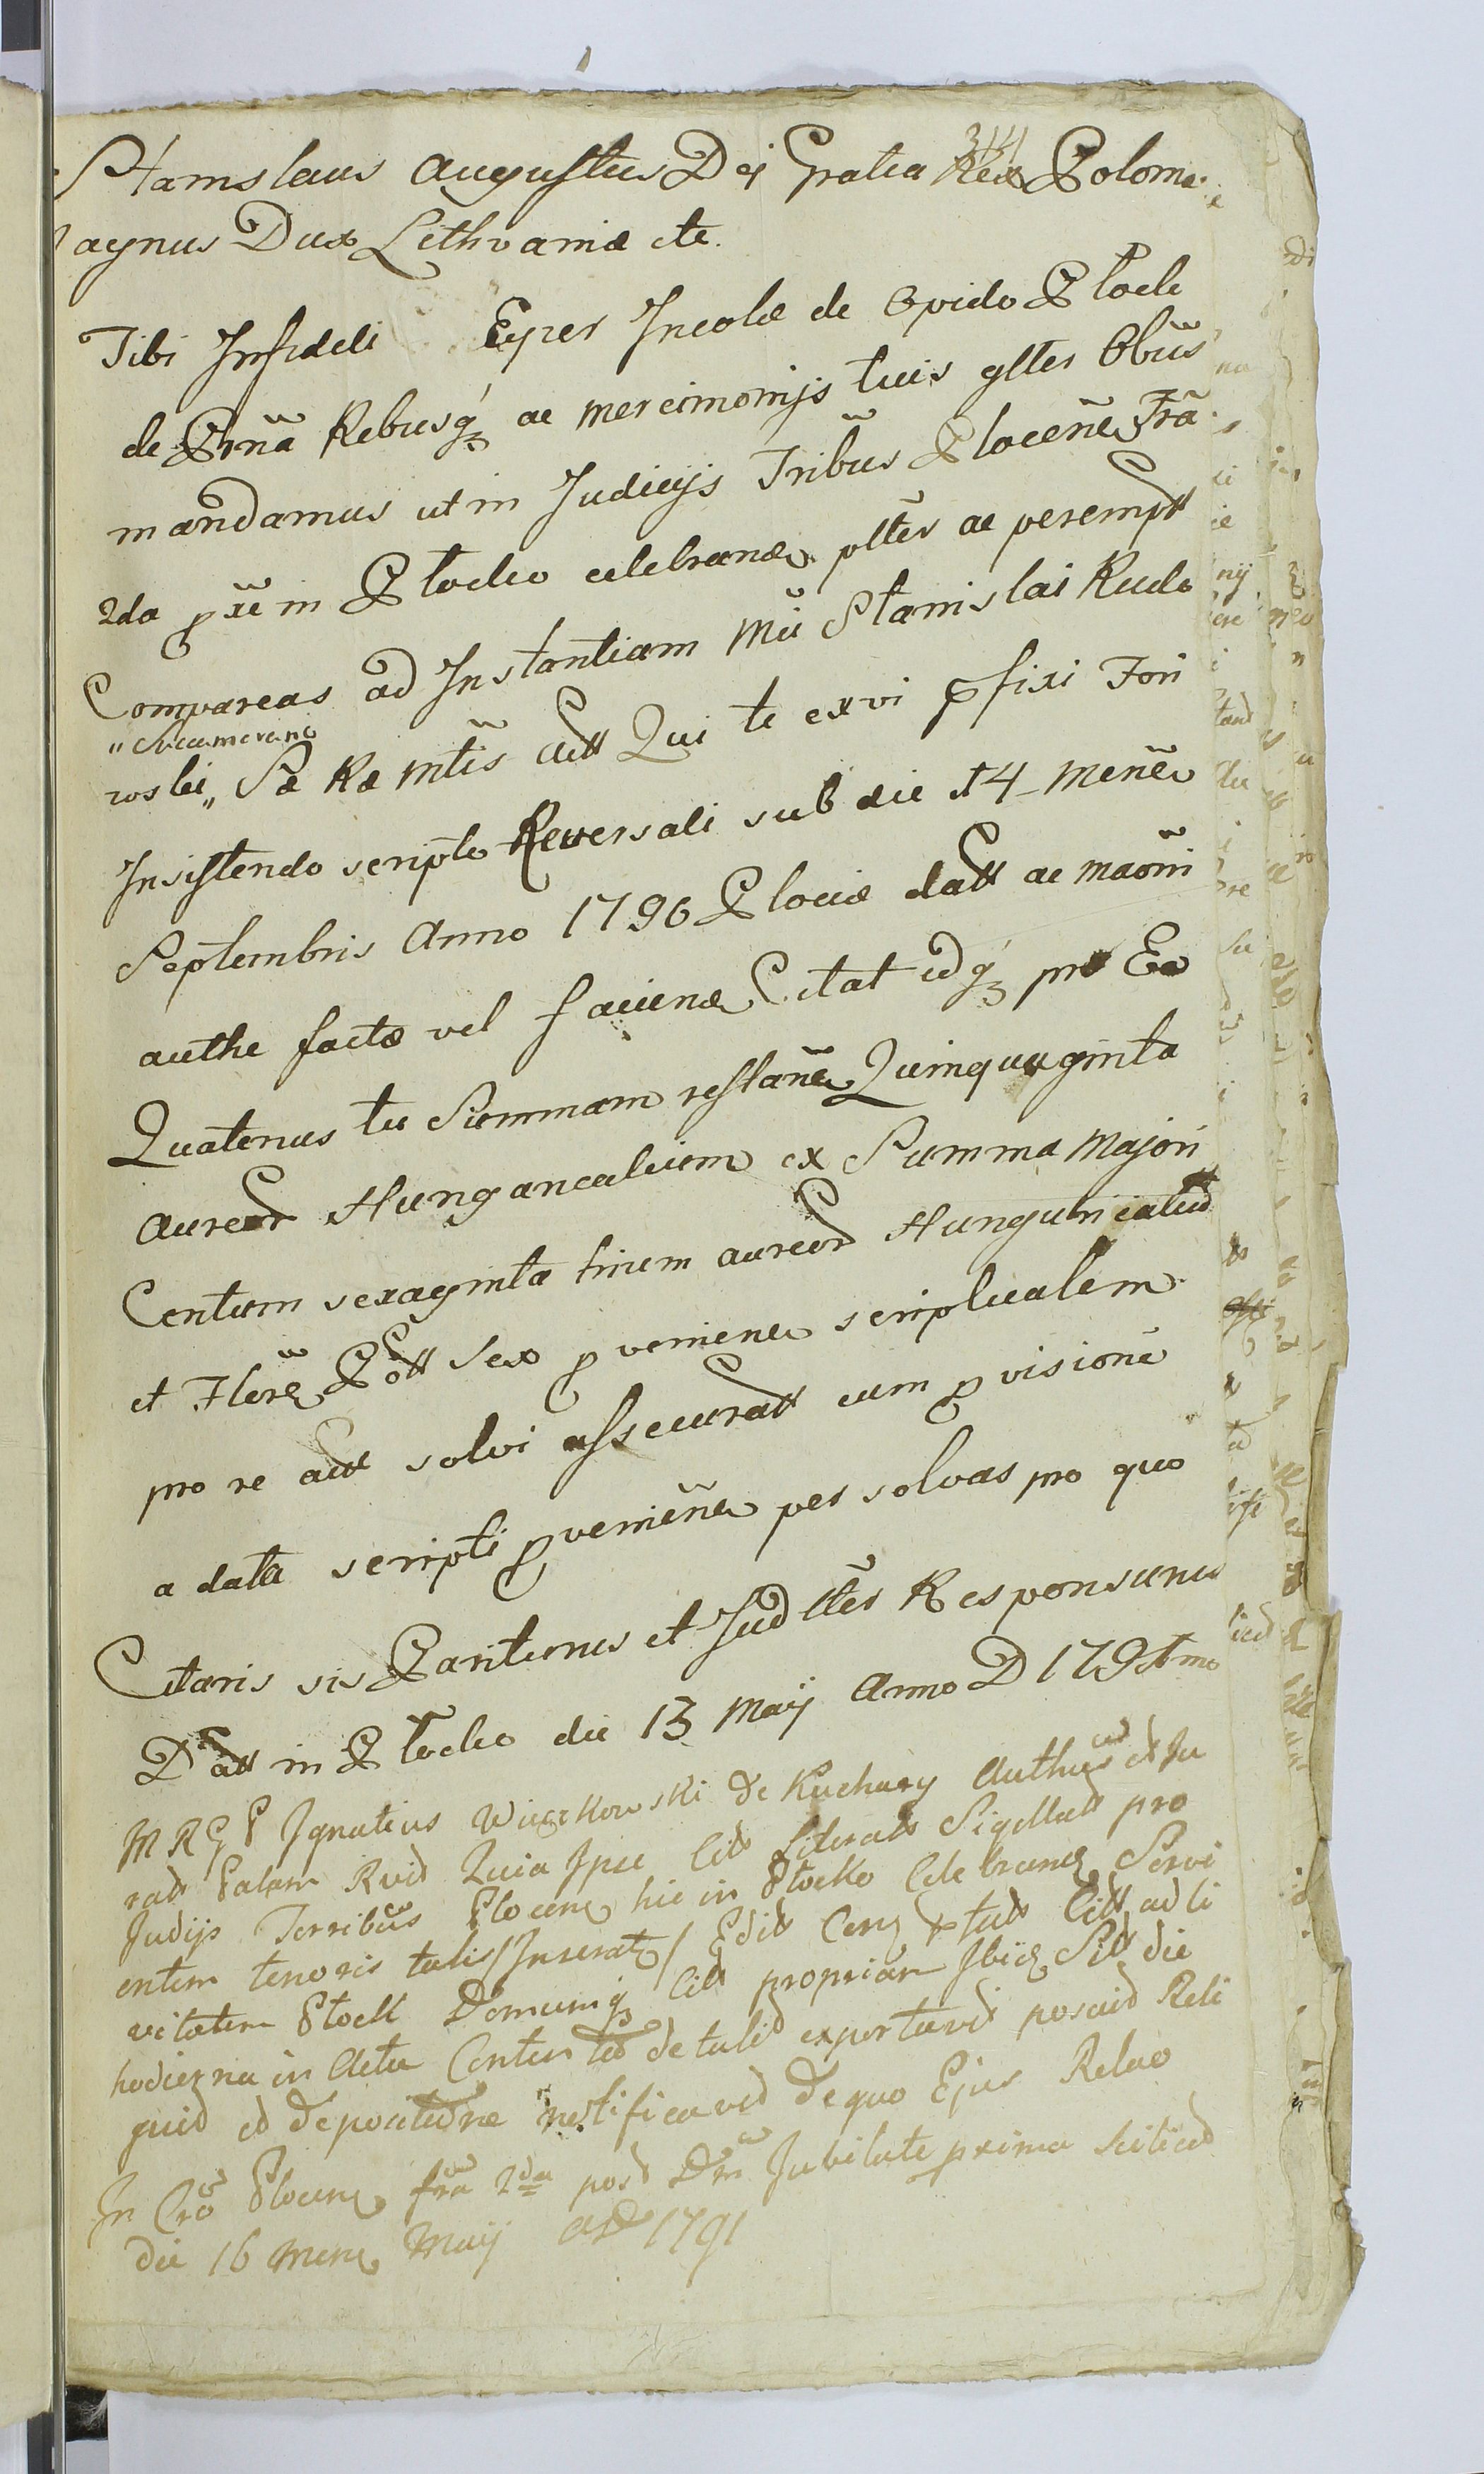 344
Stanislaus Augustus Dei Gratia Rex Poloniæ
agnus Dux Lithvaniæ etc.
Tibi Infideli Eyzer Incolæ de Opido Plock
de Prña Rebusq ac mercimonijs tuis gltter Obus
mandamus ut in Judicijs Tribus Plocen Fra
2da pxe in Plocko celebrand pltter ac perempt
Compareas ad Instantiam Mci Stanislai Rudo
"Succamerario
wski" Sæ Ræ Mtis Act Qui te ex vi præfixi Fori
Insistendo scripto Reversali sub die 14 mensis
Septembris Anno 1790 Plociæ datt ac maoni
authe factæ vel faciend Citat idq pro Eo
Quatenus tu Summam restan Quinquaginta
Aureor Hungaricalium ex Summa Majori
Centum sexaginta trium aureor Hungaricaliu
et Flor Poll Sex provenien scriptualem
pro re act solvi assecuratt cum provisione
a data scripti provenien persolvas pro quo
Citaris sis Pariturus et Judltter Responsurus
Datt in Plocko die 13 Maij Anno D 1791mo
M R G P Ignatius Wierzkowski de Kuchary Authus et Ju
rat Palam Rvit Quia Ipse Lit Literat Sigillatt pro
Judijs Terribus Plocen hic in Plocko Celebrand Servi
entem tenoris talis /Inserat/ Edit Cen Citt ad Ci
vitatem Plock Domumq Citt propriam Ibiq Sitt die
hodierna in Acta Conten detulit exportavit posuit Reli
quit et deposituræ notificavit de quo Ejus Relao
In Cro Plocen fra 2da post Dm Jubilate proxima scilicet
die 16 Mens Maij AD 1791